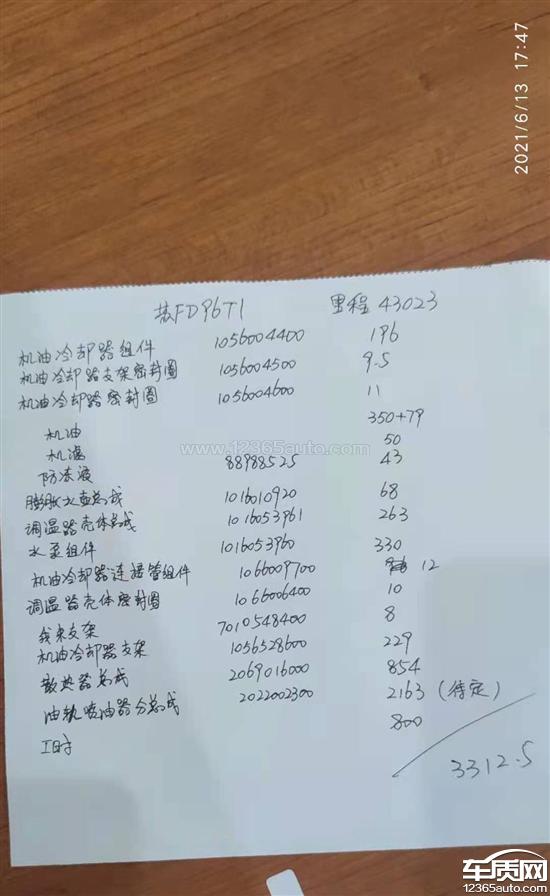 2021/6/13 17:47
苏FD96T1 里程 43023
机油冷却器组件 1056004400 196
机油冷却器支架密封圈 1056004500 9.5
机油冷却器密封圈 1056004600 11
机油 350+79
机滤 50
防冻液 88988525 43
膨胀水壶总成 1016010920 68
调温器壳体总成 1016053961 263
水泵组件 1016053960 330
机油冷却器连接管组件 1066009700 12
调温器壳体密封圈 1066006400 10
支架 7010548400 8
机油冷却器支架 1056528600 229
散热器总成 2069016000 854
油轨喷油器分总成 2022002300 2163(待定)
工时 800
3312.5
www.12365auto.com
车质网
12365auto.com